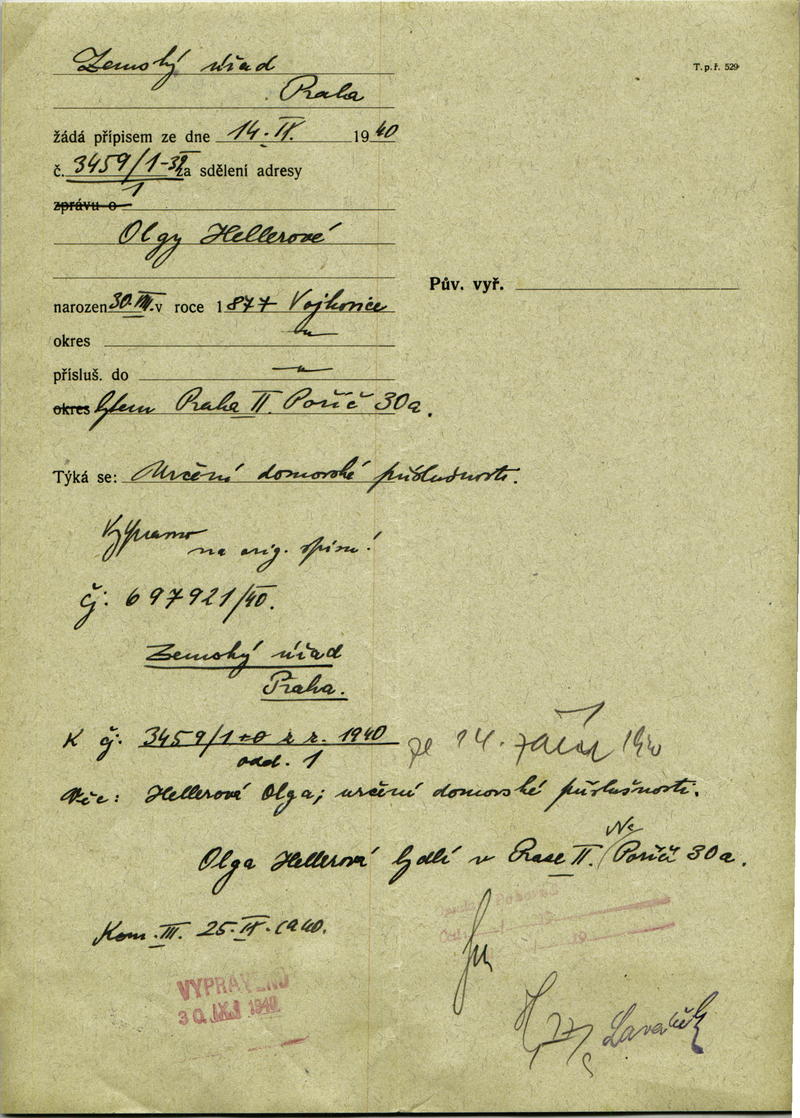 Zemský úřad
T. p. ř. 529
Praha
žádá přípisem ze dne 14. IX. 1940
č. 3459/1-39 za sdělení adresy
1
zprávu o
Olgy Hellerové
Pův. vyř.
narozen 30. III. v roce 1877 Vojkovice
okres "
přísluš. do "
okres bytem Praha II. Poříč 30a.
Týká se: Určení domovské příslušnosti.
Vypraveno
na orig. spisu!
čj: 697921/40.
Zemský úřad
Praha.
K čj: 3459/1 z r. 1940 ze 14. září 1940
odd. 1
Věc: Hellerová Olga; určení domovské příslušnosti.
Na
Olga Hellerová bydlí v Praze II. Poříč 30a.
Kom. III. 25. IX. 1940.
VYPRAVENO
30. IX. 1940